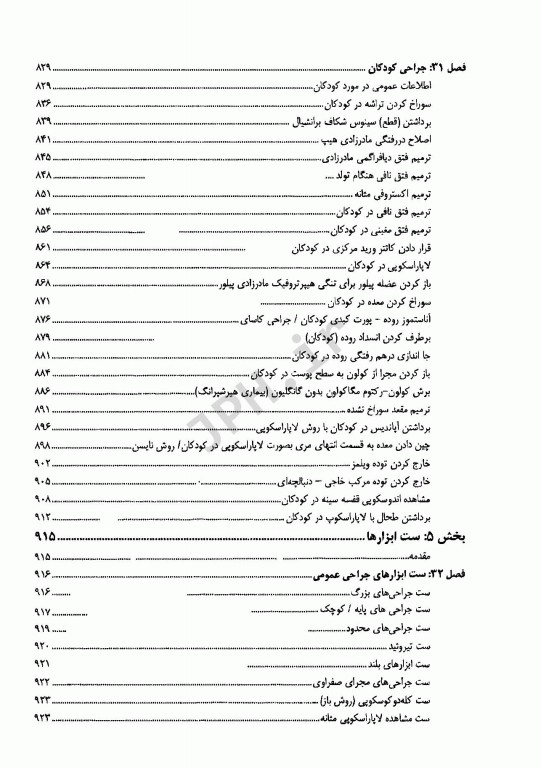 فصل ۳۱: جراحی کودکان ........ ۸۲۹
اطلاعات عمومی در مورد کودکان ........ ۸۲۹
سوراخ کردن تراشه در کودکان ........ ۸۳۶
برداشتن (قطع) سینوس شکاف برانشیال ........ ۸۳۹
اصلاح دررفتگی مادرزادی هیپ ........ ۸۴۱
ترمیم فتق دیافراگمی مادرزادی ........ ۸۴۵
ترمیم فتق نافی هنگام تولد ........ ۸۴۸
ترمیم اکستروفی مثانه ........ ۸۵۱
ترمیم فتق نافی در کودکان ........ ۸۵۴
ترمیم فتق مغبنی در کودکان ........ ۸۵۶
قرار دادن کاتتر ورید مرکزی در کودکان ........ ۸۶۱
لاپاراسکوپی در کودکان ........ ۸۶۴
باز کردن عضله پیلور برای تنگی هیپرتروفیک مادرزادی پیلور ........ ۸۶۸
سوراخ کردن معده در کودکان ........ ۸۷۱
آناستموز روده - پورت کبدی کودکان / جراحی کاسای ........ ۸۷۶
برطرف کردن انسداد روده (کودکان) ........ ۸۷۹
جا اندازی درهم رفتگی روده در کودکان ........ ۸۸۱
باز کردن مجرا از کولون به سطح پوست در کودکان ........ ۸۸۴
برش کولون-رکتوم مگاکولون بدون گانگلیون (بیماری هیرشپرانگ) ........ ۸۸۶
ترمیم مقعد سوراخ نشده ........ ۸۹۱
برداشتن آپاندیس در کودکان با روش لاپاراسکوپی ........ ۸۹۶
چین دادن معده به قسمت انتهای مری بصورت لاپاراسکوپی در کودکان/ روش نایسن ........ ۸۹۸
خارج کردن توده ویلمز ........ ۹۰۲
خارج کردن توده مرکب خاجی - دنبالچه‌ای ........ ۹۰۵
مشاهده اندوسکوپی قفسه سینه در کودکان ........ ۹۰۸
برداشتن طحال با لاپاراسکوپ در کودکان ........ ۹۱۲
بخش ۵: ست ابزارها ........ ۹۱۵
مقدمه ........ ۹۱۵
فصل ۳۲: ست ابزارهای جراحی عمومی ........ ۹۱۶
ست جراحی‌های بزرگ ........ ۹۱۶
ست جراحی های پایه / کوچک ........ ۹۱۷
ست جراحی‌های محدود ........ ۹۱۹
ست تیروئید ........ ۹۲۰
ست ابزارهای بلند ........ ۹۲۱
ست جراحی‌های مجرای صفراوی ........ ۹۲۲
ست کله‌دوکوسکوپی (روش باز) ........ ۹۲۳
ست مشاهده لاپاراسکوپی مثانه ........ ۹۲۳
JPH.ir